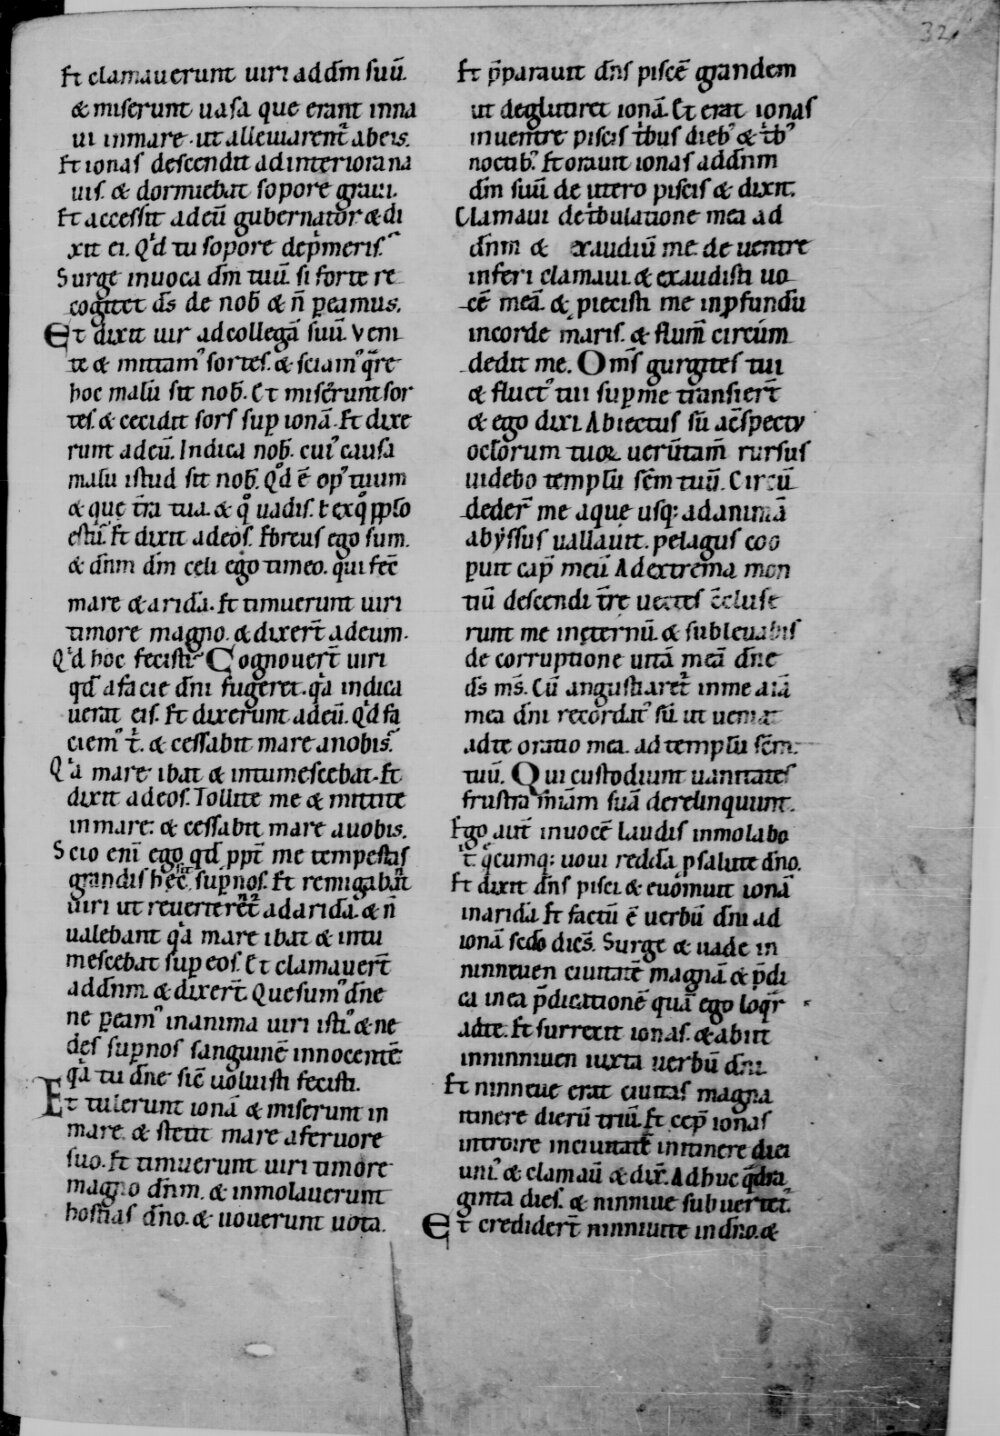 32
Et clamauerunt uiri ad dm̄ suū.
& miserunt uasa que erant in na
ui in mare. ut alleuiarent̄ ab eis.
Et ionas descendit ad interiora na
uis. & dormiebat sopore graui.
Et accessit ad eū gubernator & di
xit ei. Qd̓ tu sopore dep̓meris.
Surge inuoca dm̄ tuū. si forte re
cogitet ds̄ de nob̄ & n̄ ꝑeamus.
Et dixit uir ad collegā suū. Veni
te & mittam᾿ sortes. & sciam᾿ qͣre
hoc malū sit nob̄. Et miserunt sor
tes. & cecidit sors suꝑ ionā. Et dixe
runt ad eū. Indica nob̄. cui᾿ causa
malū istud sit nob̄. Qd̓ ē op᾿ tuum
& que t̄ra tua. & qͦ uadis. ł ex qͦ pplo
es tū. Et dixit ad eos. Ebreus ego sum.
& dn̄m dm̄ celi ego timeo. qui fec̄
mare & aridā. Et timuerunt uiri
timore magno. & dixer̄t ad eum.
Qd̓ hoc fecisti. Cognouer̄t uiri
qd̓ a facie dn̄i fugeret. qͣa indica
uerat eis. Et dixerunt ad eū. Qd̓ fa
ciem᾿ t̓. & cessabit mare a nobis.
Qͣa mare ibat & intumescebat. Et
dixit ad eos. Tollite me & mittite
in mare: & cessabit mare a uobis.
Scio eni̅ ego qd̓ ppt̄ me tempestas
grandis hec̄ sit suꝑ nos. Et remigabant̄
uiri ut reuerterent̄ ad aridā. & n̄
ualebant qͣa mare ibat & intu
mescebat suꝑ eos. Et clamauer̄t
ad dn̄m. & dixer̄t. Quesum᾿ dn̄e
ne ꝑeam᾿ in anima uiri isti᾿ & ne
des suꝑ nos sanguinē innocentē
qͣa tu dn̄e sic̄ uoluisti fecisti.
Et tulerunt ionā & miserunt in
mare. & stetit mare a feruore
suo. Et timuerunt uiri timore
magno dn̄m. & inmolauerunt
hostias dn̄o. & uouerunt uota.
Et p̄parauit dn̄s piscē grandem
ut deglutiret ionā. Et erat ionas
in uentre piscis t̓bus dieb᾿ & t̓b᾿
noctib᾿. Et orauit ionas ad dn̄m
dm̄ suū de utero piscis & dixit.
Clamaui de t̓bulatione mea ad
dn̄m & exaudiuī me. de uentre
inferi clamaui. & exaudisti uo
cē meā. & piecisti me in ꝓfundū
in corde maris. & flum̄ circum
dedit me. Om̄s gurgites tui
& fluct᾿ tui suꝑ me transier̄t
& ego dixi. Abiectus sū ac̄spectu
oclōrum tuoꝝ uerūtam̄ rursus
uidebo templū sc̄m tuū. Circū
deder̄ me aque usq; ad animā
abyssus uallauit. pelagus coo
puit cap᾿ meū. Ad extrema mon
tiū descendi t̄re uectes c̄cluse
runt me in eternū. & subleuabis
de corruptione uitā meā dn̄e
ds̄ ms̄. Cū angustiaret̄ in me aīa
mea dn̄i recordat᾿ sū ut ueniat
ad te oratio mea. ad templū sc̄m.
tuū. Qui custodiunt uanitates
frustra m̄iam suā derelinquunt.
Ego aut̄ in uoce laudis inmolabo
t̓ qͤcumq; uoui reddā ꝓ salute dn̄o.
Et dixit dn̄s pisci. & euomuit ionā
in aridā. Et factū ē uerbū dn̄i ad
ionā sc̄do dicēs. Surge & uade in
nineuen ciuitatē magnā & p̄di
ca in ea p̄dicationē quā ego loq̓r
ad te. Et surrexit ionas. & abiit
in niniuen iuxta uerbū dn̄i.
Et nineue erat ciuitas magna
itinere dierū triū. Et cep̄ ionas
introire in ciuitatē in itinere diei
uni᾿ & clamaū & dix̄. Adhuc qͣdra
ginta dies. & niniue subuertet᾿.
Et credider̄t niniuite in dn̄o. &